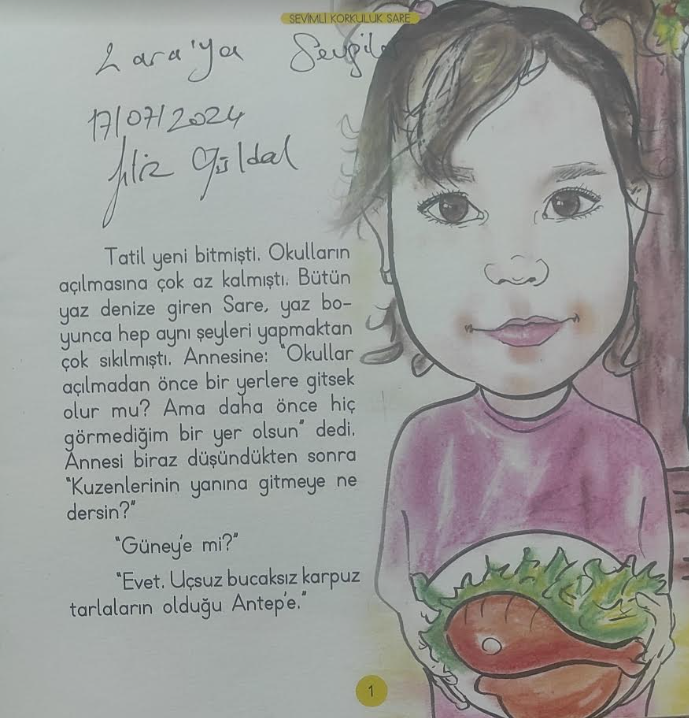 SEVİMLİ KORKULUK SARE
Lara'ya Sevgile
17/07/2024
Filiz Güldal
Tatil yeni bitmişti. Okulların
açılmasına çok az kalmıştı. Bütün
yaz denize giren Sare, yaz bo-
yunca hep aynı şeyleri yapmaktan
çok sıkılmıştı. Annesine: "Okullar
açılmadan önce bir yerlere gitsek
olur mu? Ama daha önce hiç
görmediğim bir yer olsun" dedi.
Annesi biraz düşündükten sonra
"Kuzenlerinin yanına gitmeye ne
dersin?"
"Güney'e mi?"
"Evet. Uçsuz bucaksız karpuz
tarlaların olduğu Antep'e."
1